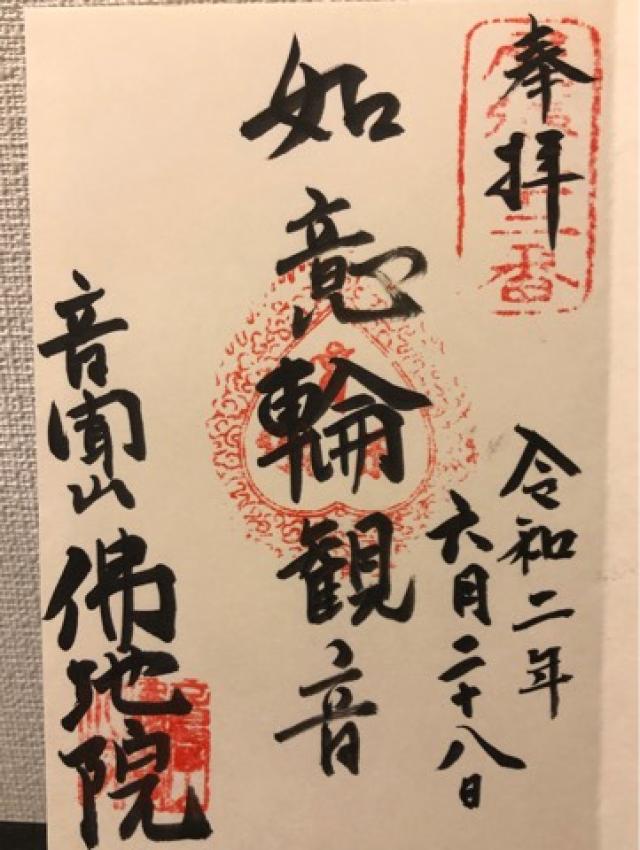 奉拝
令和二年
六月二十八日
如意輪観音
音聞山
佛地院